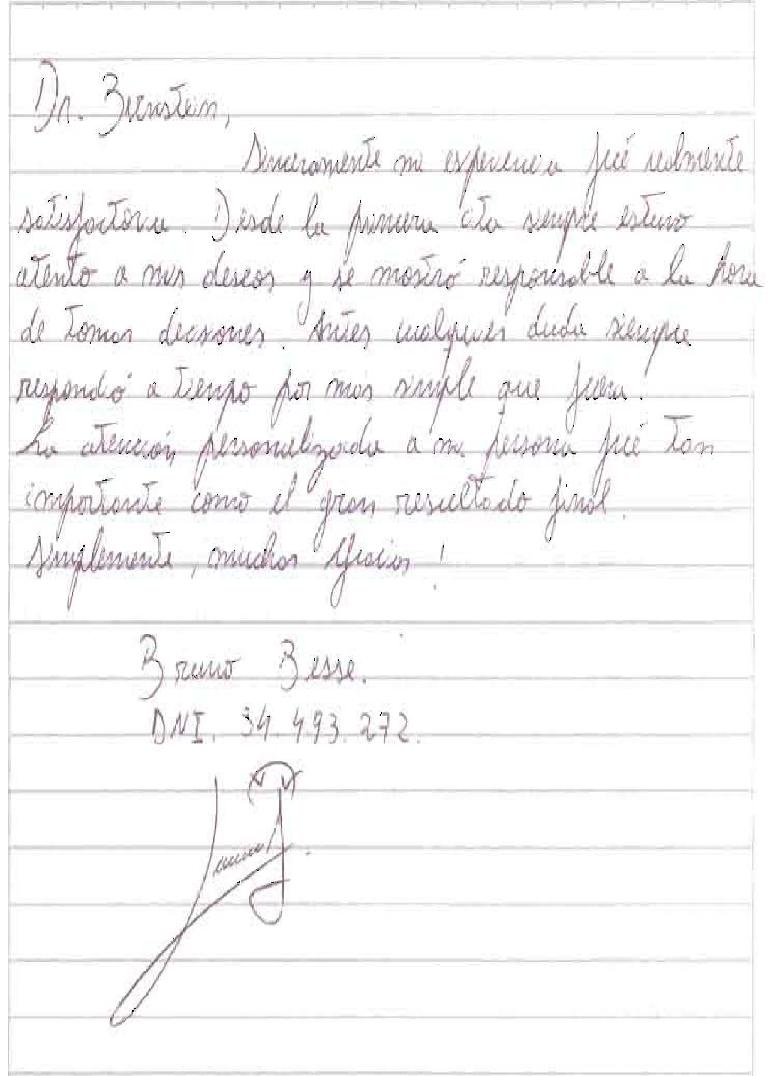 Dr. Bernstein,
Sinceramente mi experiencia fué realmente
satisfactoria. Desde la primera cita siempre estuvo
atento a mis deseos y se mostró responsable a la hora
de tomar decisiones. Antes cualquier duda siempre
respondió a tiempo por mas simple que fuera.
La atención personalizada a mi persona fué tan
importante como el gran resultado final.
Simplemente, muchas gracias!
Bruno Besse.
DNI. 34.493.272.